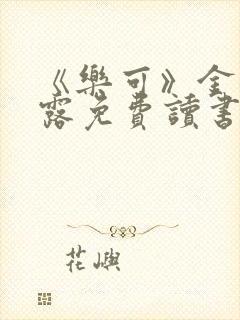 《樂可》全
露免費讀書
花嶼